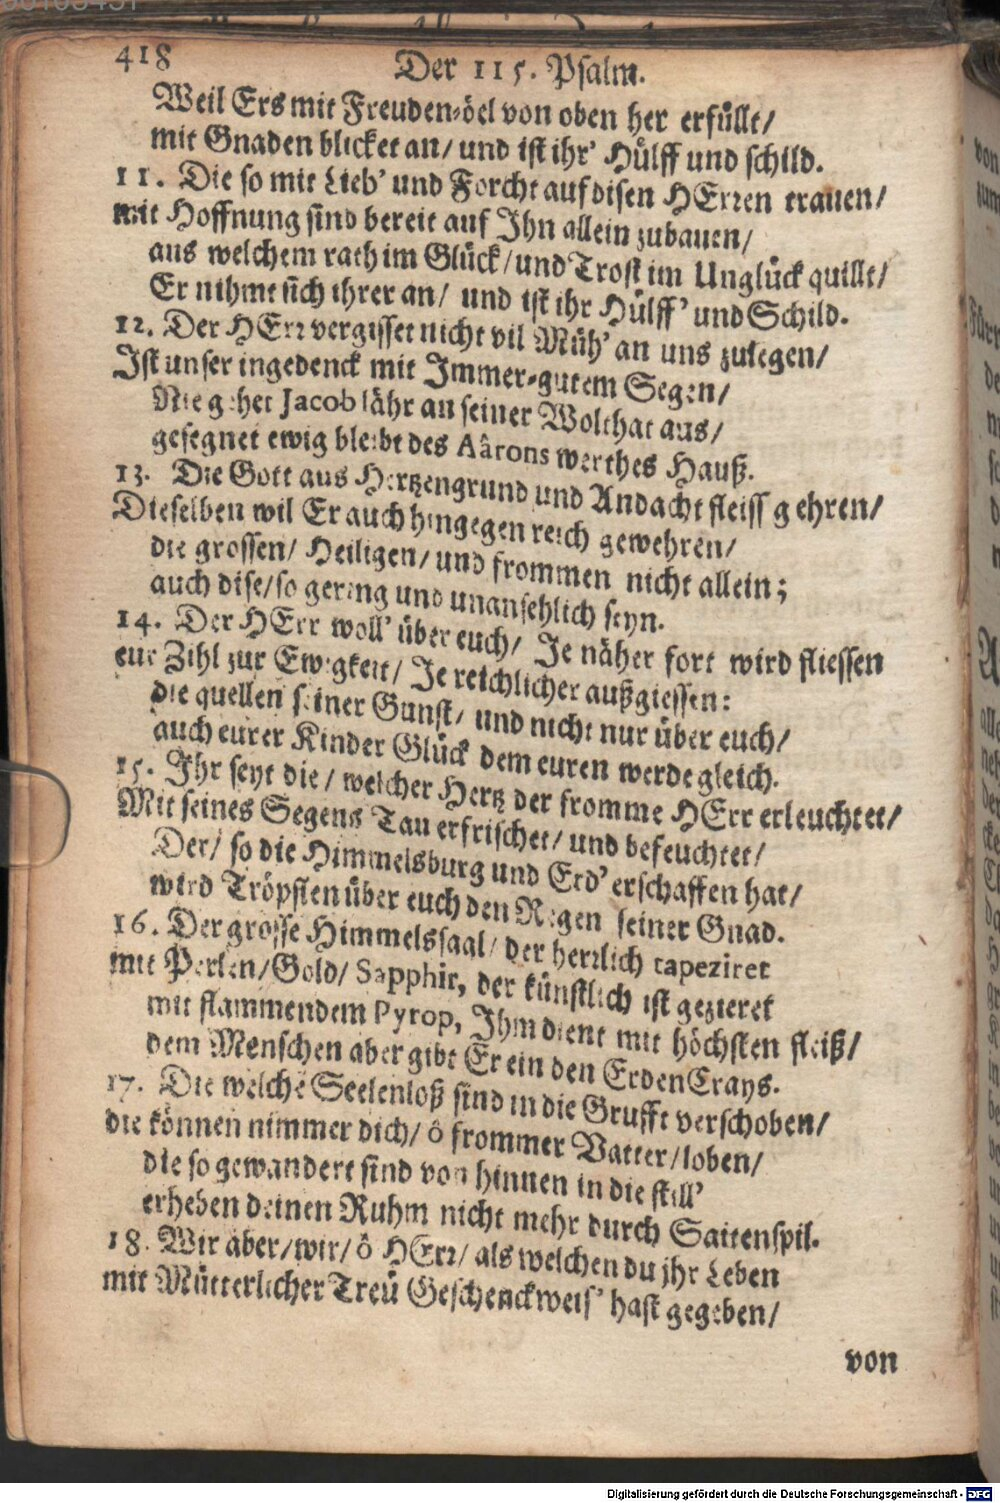 418 Der 115. Psalm.
Weil Ers mit Freuden-öel von oben her erfüllt/
mit Gnaden blicket an/ und ist ihr' Hülff und schild.
11. Die so mit Lieb' und Forcht auf disen HErren trauen/
mit Hoffnung sind bereit auf Ihn allein zubauen/
aus welchem rath im Glück/ und Trost im Unglück quillt/
Er nihmt sich ihrer an/ und ist ihr Hülff' und Schild.
12. Der HErr vergisset nicht vil Müh' an uns zulegen/
Ist unser ingedenck mit Immer-gutem Segen/
Nie gehet Jacob lähr an seiner Wolthat aus/
gesegnet ewig bleibt des Aârons werthes Hauß.
13. Die Gott aus Hertzengrund und Andacht fleissg ehren/
Dieselben wil Er auch hingegen reich gewehren/
die grossen/ Heiligen/ und frommen nicht allein;
auch dise/ so gering und unansehlich seyn.
14. Der HErr woll' über euch/ Je näher fort wird fliessen
eur Zihl zur Ewigkeit/ Je reichlicher außgiessen:
die quellen seiner Gunst/ und nicht nur über euch/
auch eurer Kinder Glück dem euren werde gleich.
15. Ihr seyt die/ welcher Hertz der fromme HErr erleuchtet/
Mit seines Segens Tau erfrischet/ und befeuchtet/
Der/ so die Himmelsburg und Erd' erschaffen hat/
wird Tröpflen über euch den Regen seiner Gnad.
16. Der grosse Himmelssaal/ der herrlich tapeziret
mit Perlen/ Gold/ Sapphir, der künstlich ist gezieret
mit flammendem Pyrop, Ihm dient mit höchsten fleiß/
dem Menschen aber gibt Er ein den Erden Crays.
17. Die welche Seelenloß sind in die Grufft verschoben/
die können nimmer dich/ ô frommer Vatter/ loben/
die so gewandert sind von hinnen in die still'
erheben deinen Ruhm nicht mehr durch Saitenspil.
18. Wir aber/ wir/ ô HErr/ als welchen du ihr Leben
mit Mütterlicher Treü Geschenckweis' hast gegeben/
von
Digitalisierung gefördert durch die Deutsche Forschungsgemeinschaft - DFG